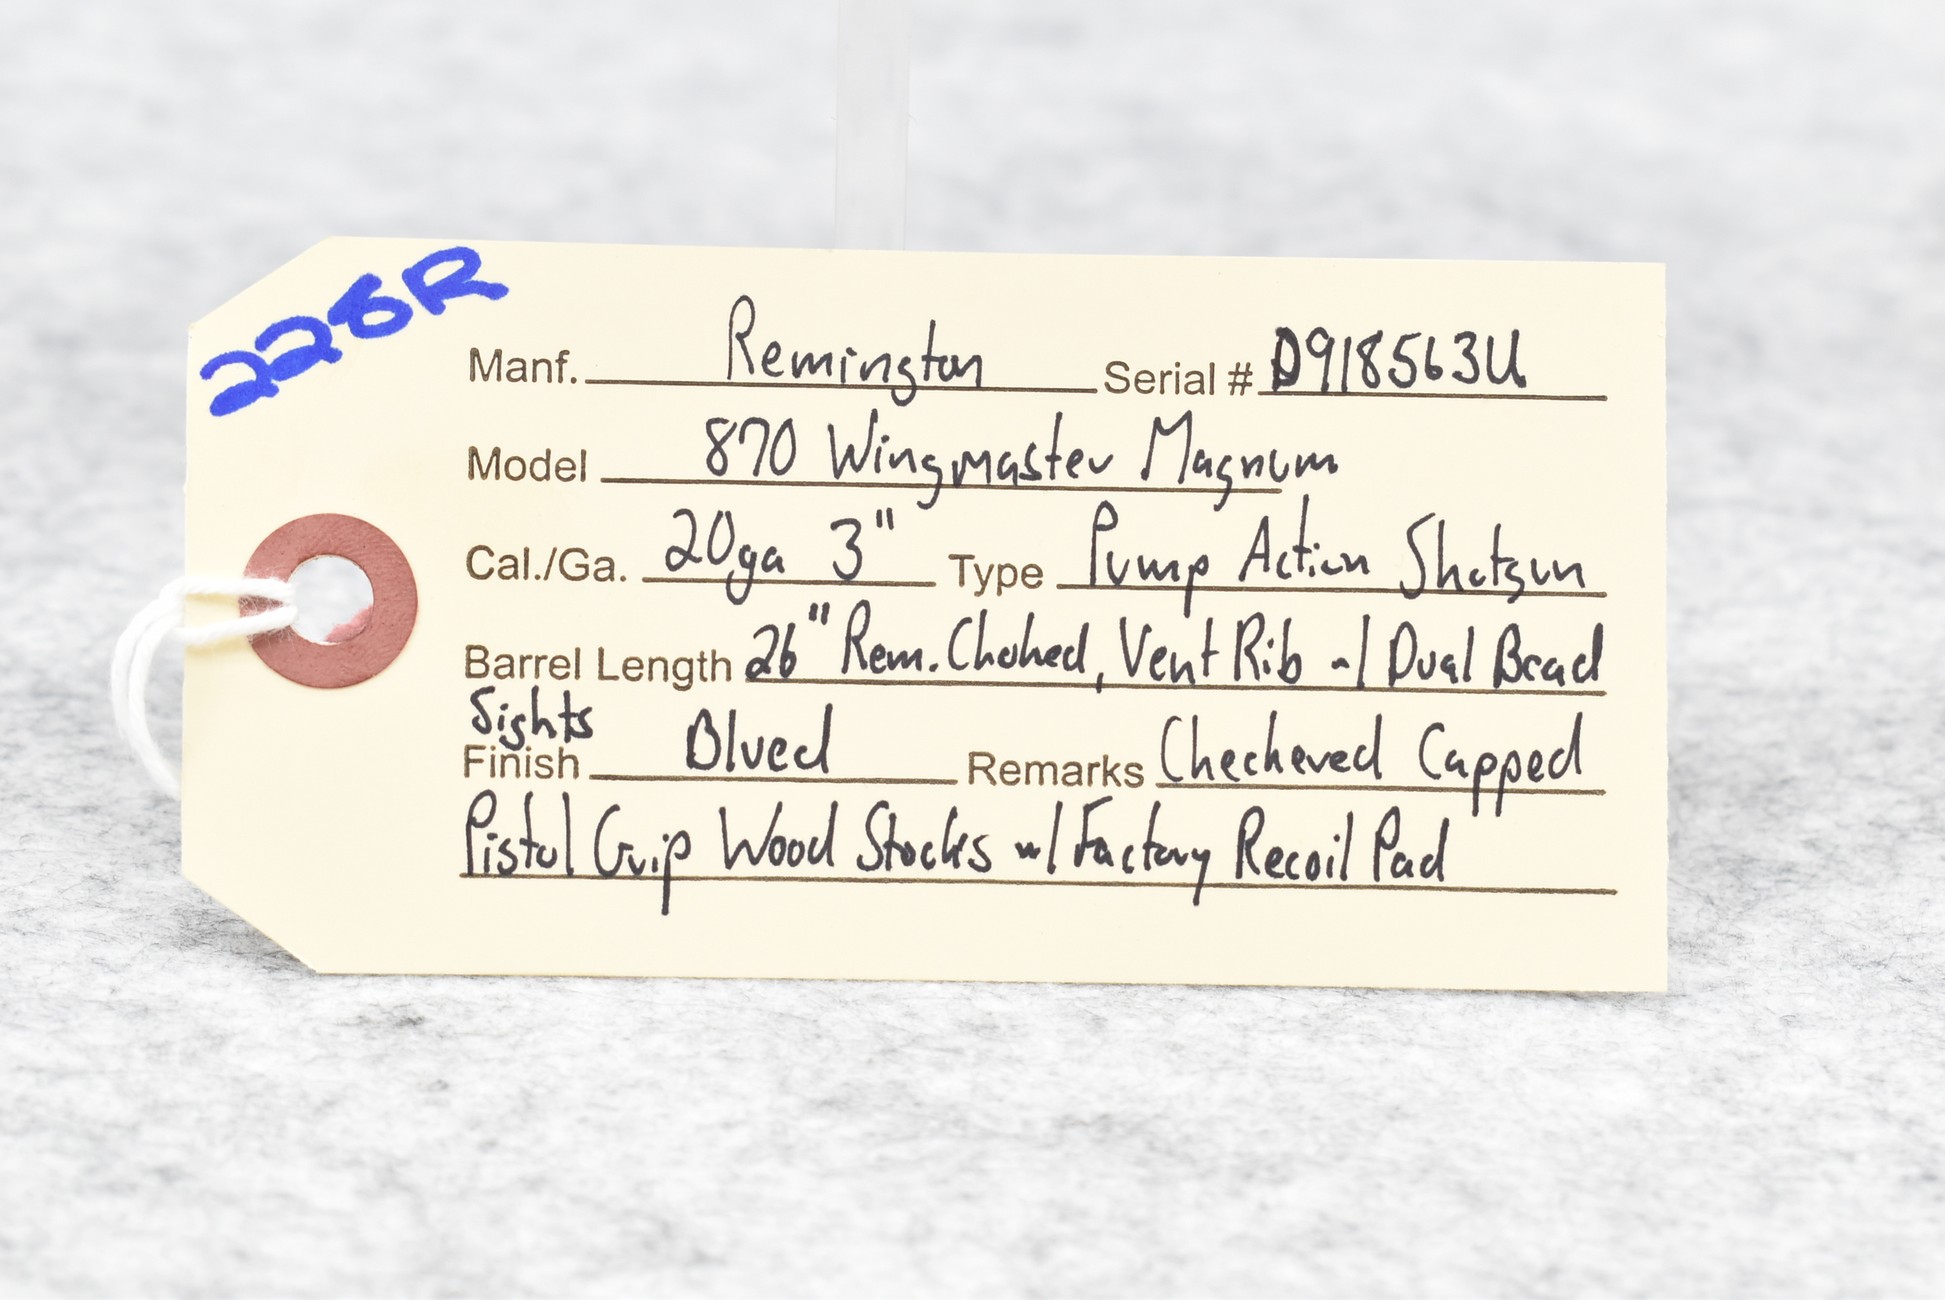 228R
Manf. Remington Serial # D918563U
Model 870 Wingmaster Magnum
Cal./Ga. 20ga 3" Type Pump Action Shotgun
Barrel Length 26" Rem. Choked, Vent Rib w/ Dual Bead
Sights
Finish Blued Remarks Checkered Capped
Pistol Grip Wood Stocks w/ Factory Recoil Pad